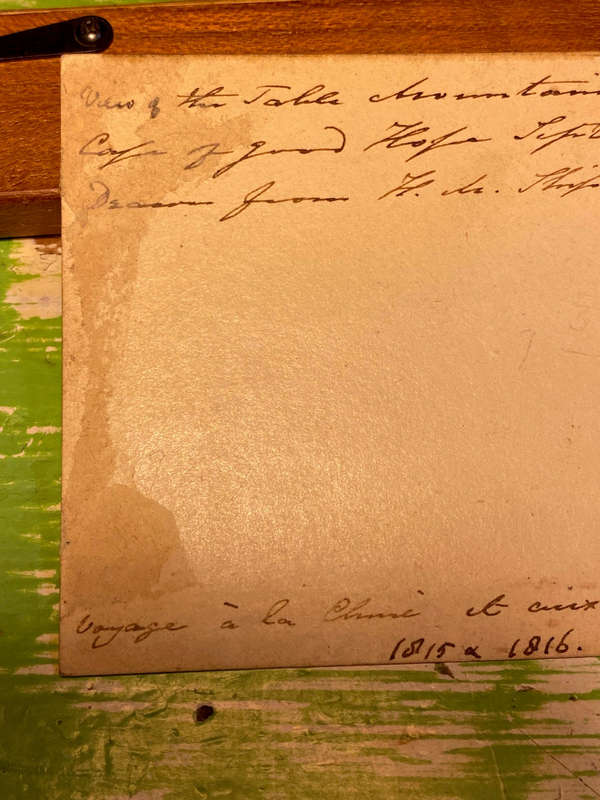 View of the Table Mountain
Cape of good Hope Sept
Drawn from H. M. Ship
Voyage à la Chine et aux
1815 a 1816.